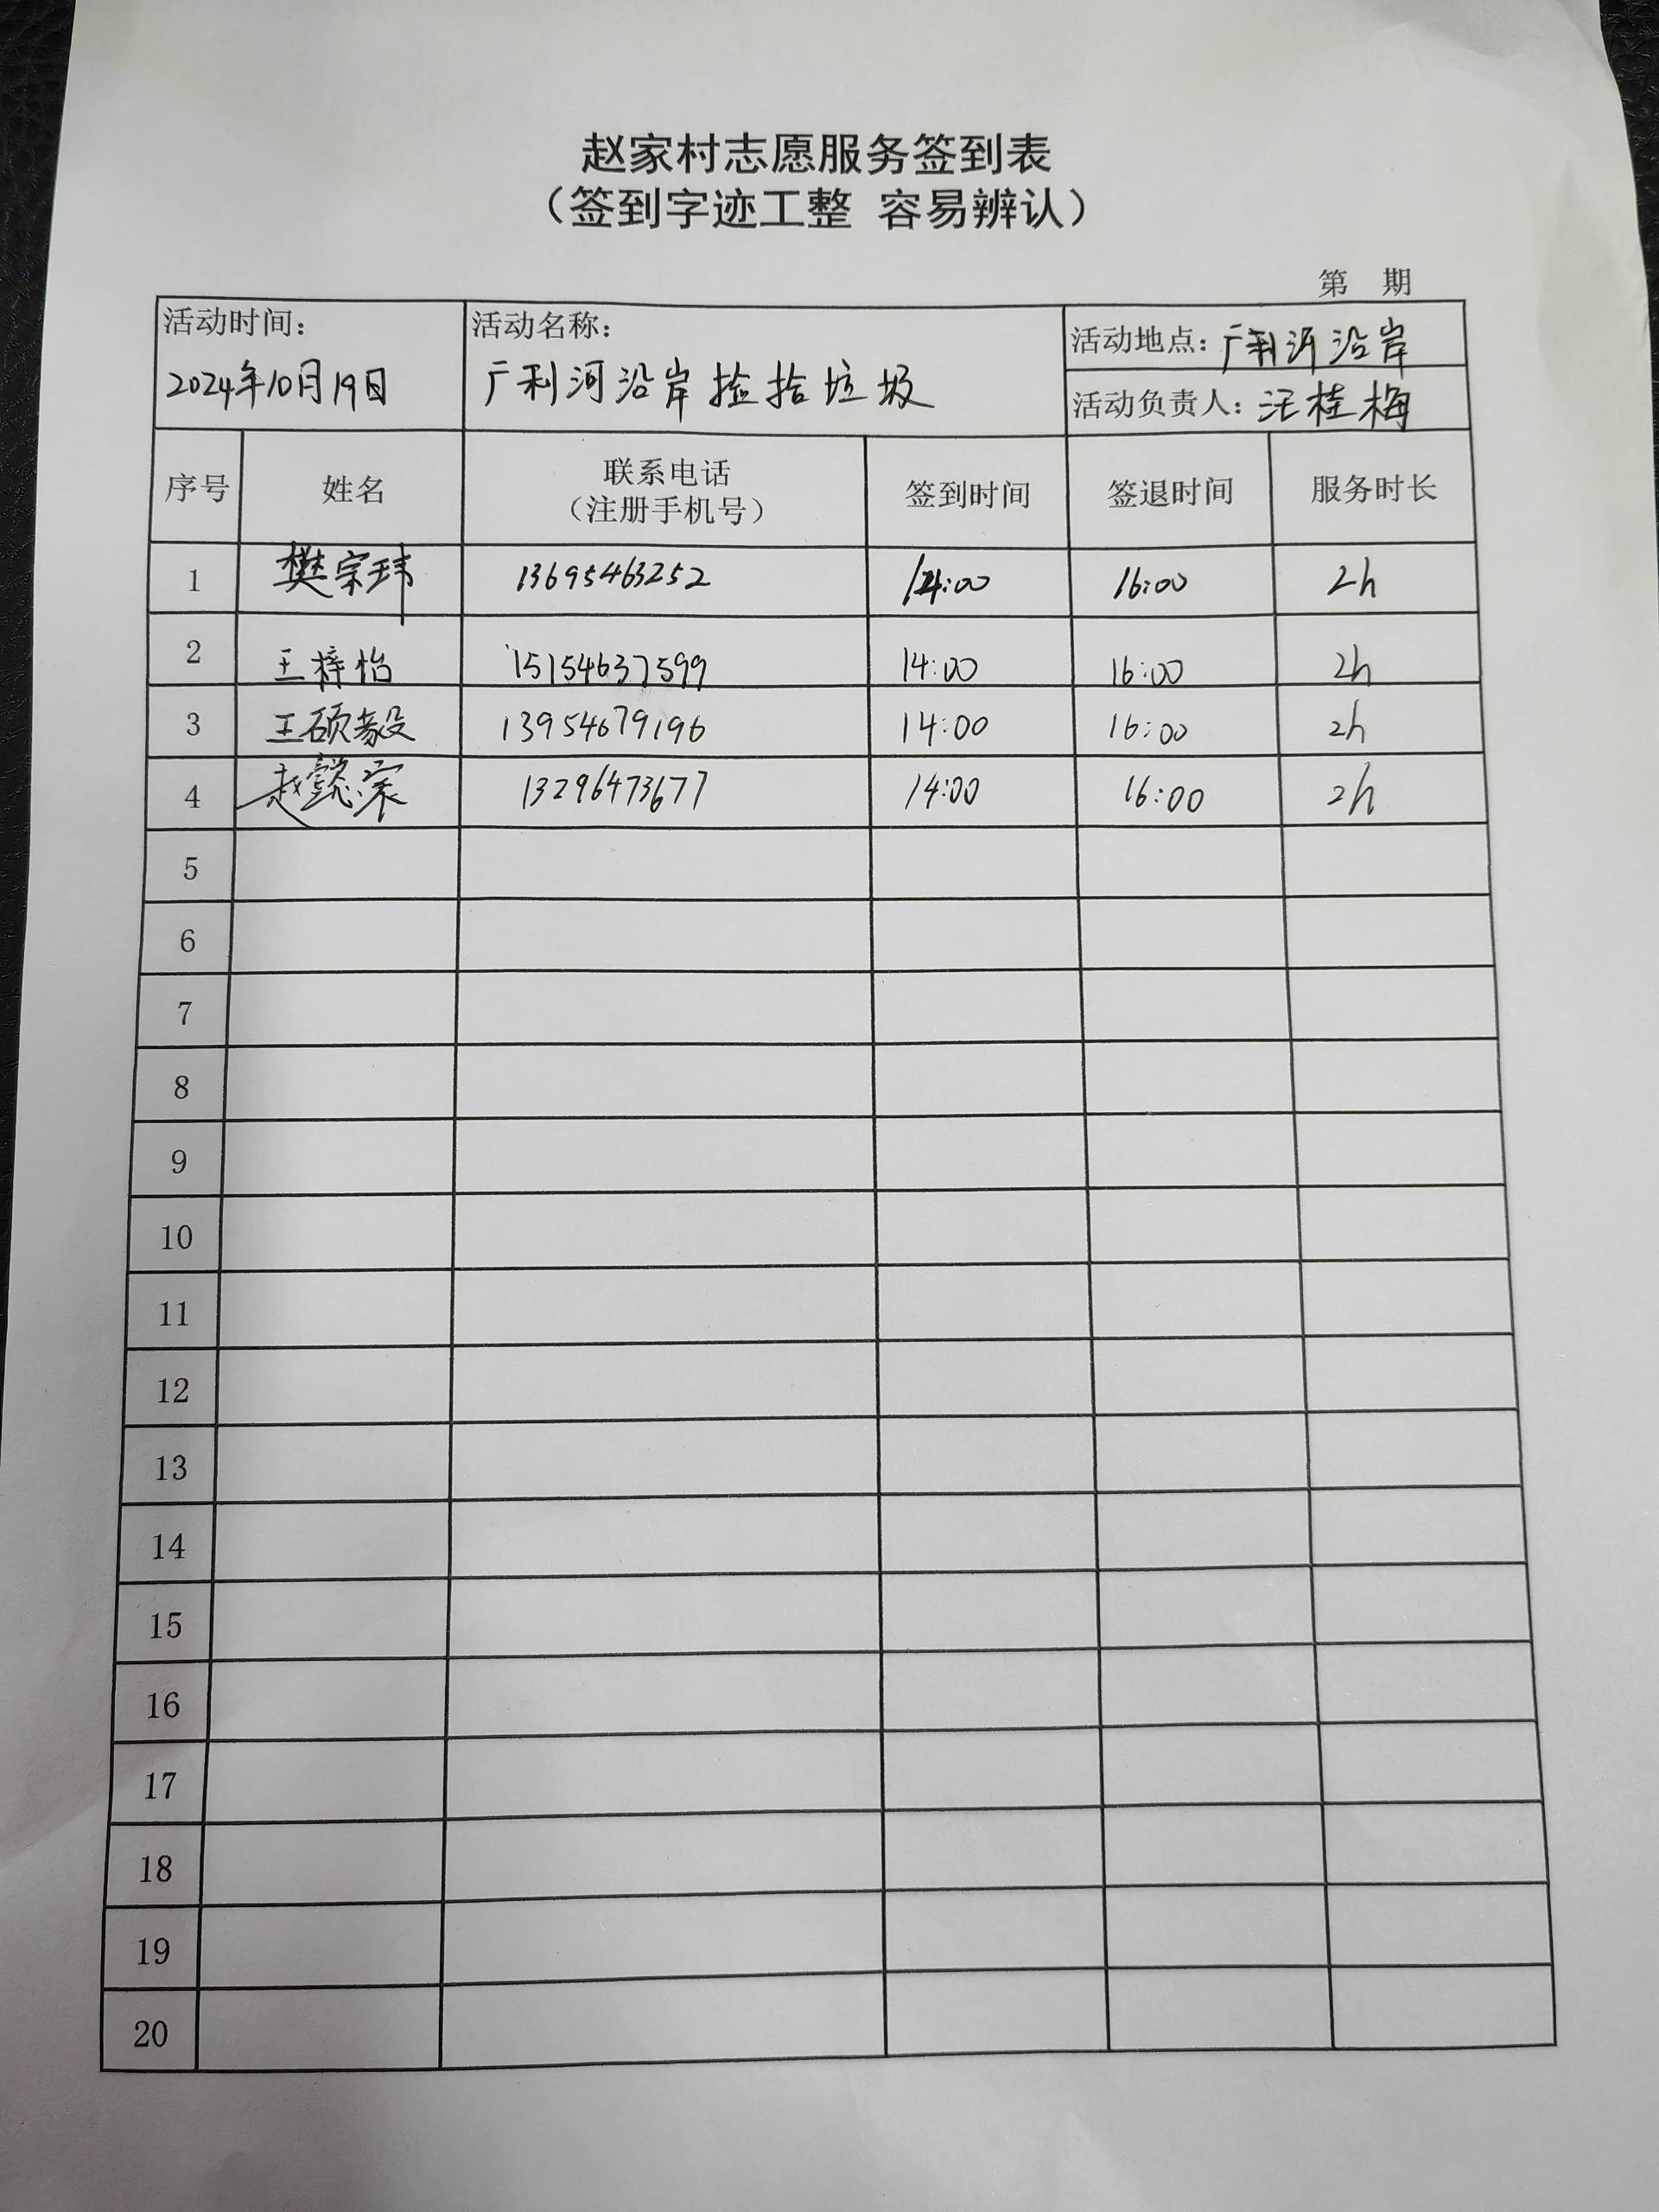 赵家村志愿服务签到表
（签到字迹工整 容易辨认）
第 期
活动时间： 活动名称： 活动地点：广利河沿岸
2024年10月19日 广利河沿岸捡拾垃圾 活动负责人：汪桂梅
序号 姓名 联系电话（注册手机号） 签到时间 签退时间 服务时长
1 樊宗玮 13695463252 14:00 16:00 2h
2 王梓怡 15154637599 14:00 16:00 2h
3 王硕毅 13954679196 14:00 16:00 2h
4 赵懿宸 13296473677 14:00 16:00 2h
5
6
7
8
9
10
11
12
13
14
15
16
17
18
19
20